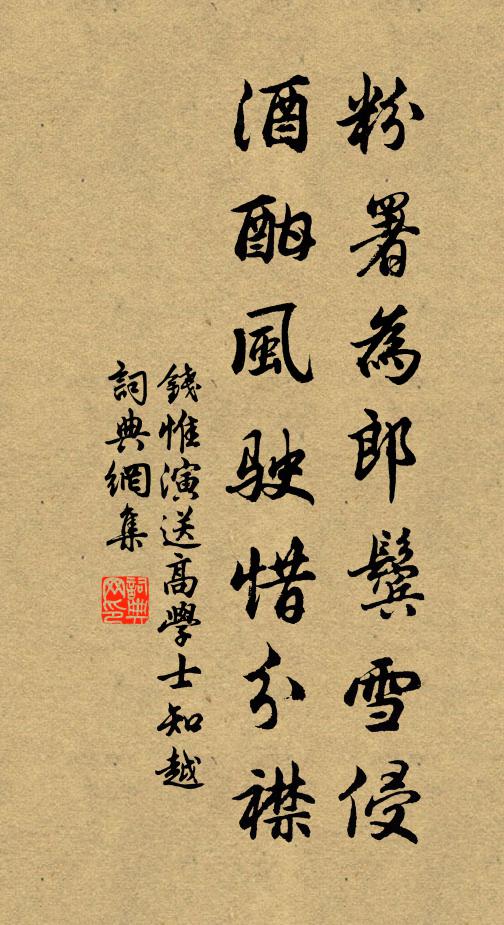 粉署為郎鬢雪侵
酒酣風駛惜分襟
錢惟演送高學士知越
詞典網集
詞典網印